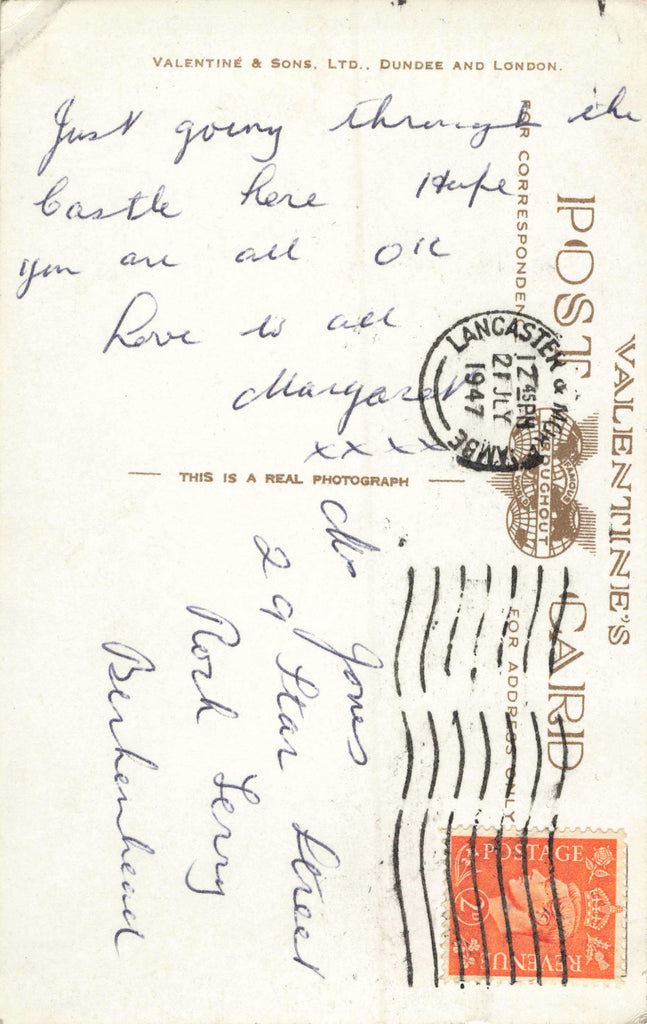 VALENTINE & SONS, LTD., DUNDEE AND LONDON.
Just going through the
Castle here Hope
you are all OK
Love to all
Margaret
xxxx
THIS IS A REAL PHOTOGRAPH
VALENTINE'S
POST CARD
FOR CORRESPONDEN
FOR ADDRESS ONLY
THROUGHOUT
LANCASTER & MORECAMBE
12 45 PM
21 JLY
1947
Jones
29 Star Street
Rock Ferry
Birkenhead
POSTAGE
2D
REVENUE